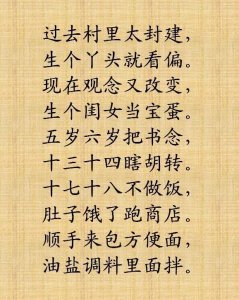 过去村里太封建，
生个丫头就看偏。
现在观念又改变，
生个闺女当宝蛋。
五岁六岁把书念，
十三十四瞎胡转。
十七十八不做饭，
肚子饿了跑商店。
顺手来包方便面，
油盐调料里面拌。